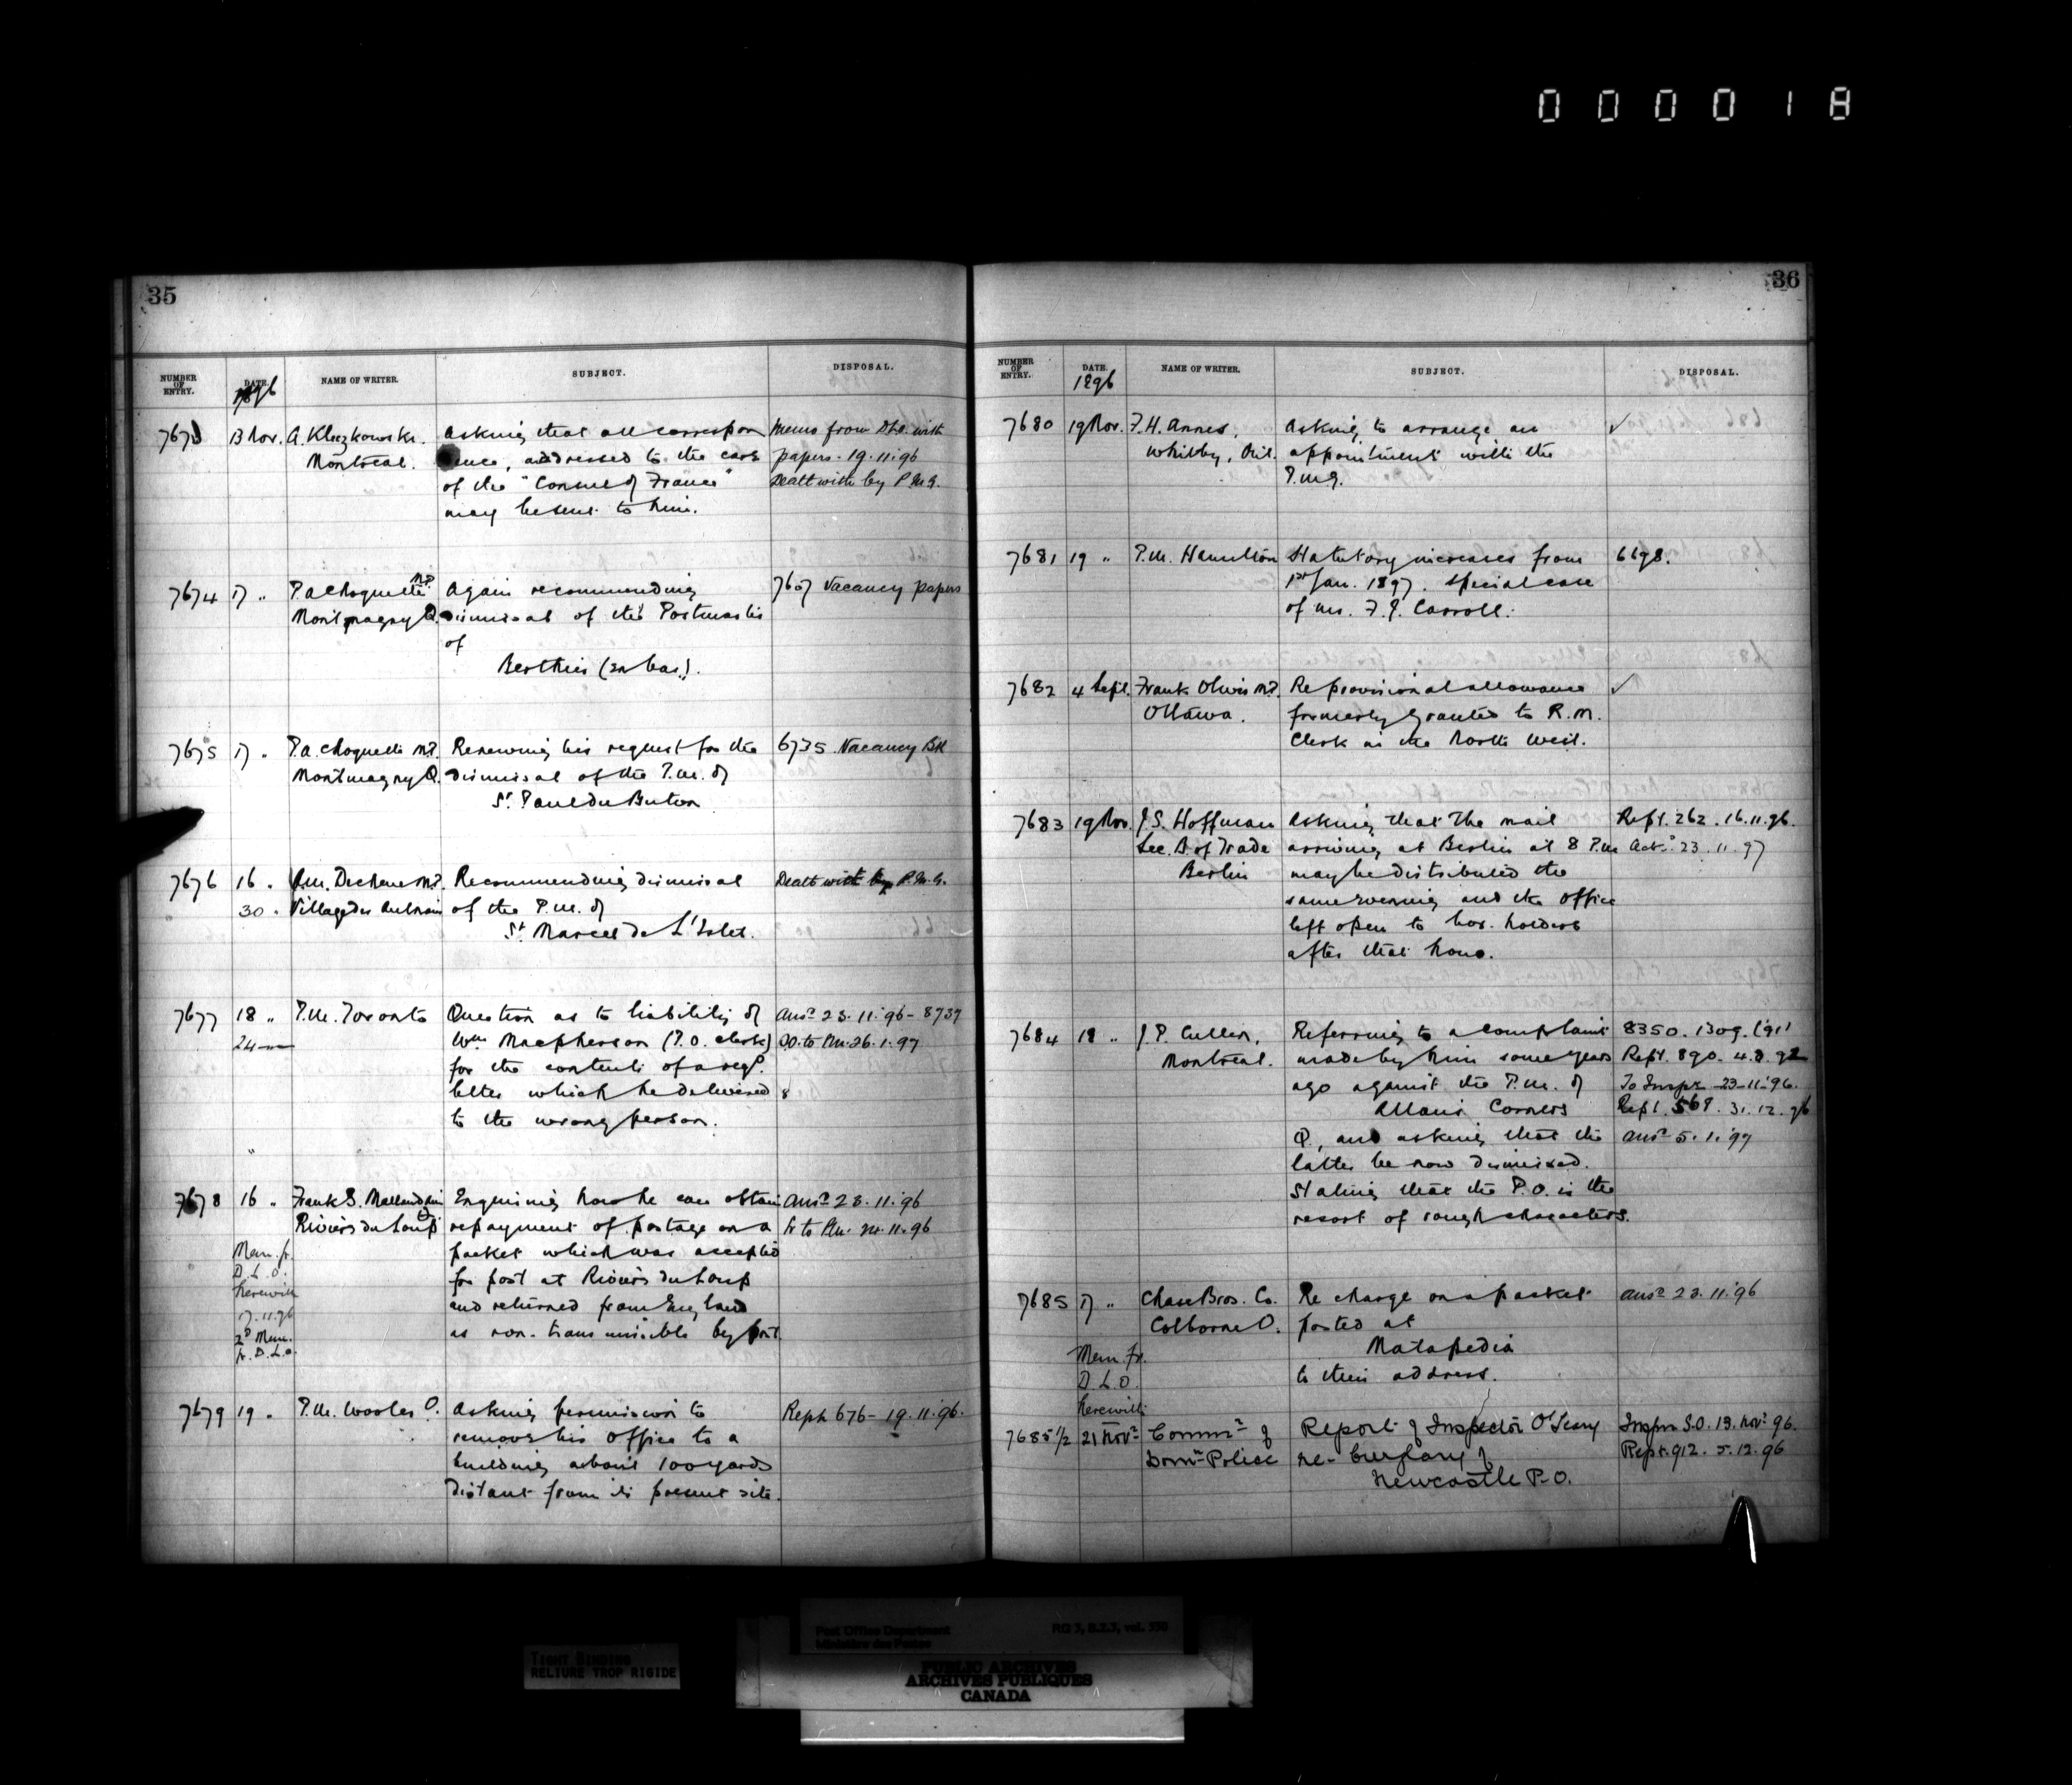 000018
35
NUMBER OF ENTRY. DATE. NAME OF WRITER. SUBJECT. DISPOSAL.
1896
7673 13 Nov. A. Kleczkowski. Asking that all correspon Memo from D.L.O. with
Montreal. dence, addressed to the care papers. 19.11.96
of the "Consul of France" Dealt with by P.M.G.
may be sent to him.
7674 17 " P.A. Choquette M.P. Again recommending 7607 Vacancy papers
Montmagny Q. dismissal of the Postmaster
of
Berthier (en bas).
7675 17 " P.A. Choquette M.P. Renewing his request for the 6735 Vacancy Bk
Montmagny Q. dismissal of the P.M. of
St. Paul du Buton
7676 16 " A.M. Dechene M.P. Recommending dismissal Dealt with by P.M.G.
30 " Village des Aulnaies of the P.M. of
St. Marcel de L'Islet.
7677 18 " P.M. Toronto Question as to liability of Ansd 23.11.96 - 8737
24 Wm Macpherson (P.O. clerk) D.O. to P.M. 26.1.97
for the contents of a regd.
letter which he delivered 8
to the wrong person.
"
7678 16 " Frank S. Mallandain Enquiring how he can obtain Ansd 28.11.96
Rivière du Loup Q repayment of postage on a
packet which was accepted
Mem. fr. D.L.O. herewith for post at Rivière du Loup
17.11.96 and returned from England
2d Mem. fr. D.L.O. as non-transmissible by post.
7679 19 " P.M. Wooler O. Asking permission to Reph 676 - 19.11.96.
remove his office to a
building about 100 yards
distant from its present site.
36
NUMBER OF ENTRY. DATE. NAME OF WRITER. SUBJECT. DISPOSAL.
1896
7680 19 Nov. F.H. Annes, Asking to arrange an ✓
Whitby, Ont. appointment with the
P.M.G.
7681 19 " P.M. Hamilton Statutory increases from 6698.
1st Jan. 1897. Special case
of Mr. F.J. Carroll.
7682 4 Sept. Frank Oliver M.P. Re provisional allowance ✓
Ottawa. formerly granted to R.M.
Clerk in the North West.
7683 19 Nov. J.S. Hoffman Asking that the mail Rept. 262. 16.11.96.
Sec. B of Trade arriving at Berlin at 8 P.M. Ackd. 23.11.97
Berlin may be distributed the
same evening and the office
left open to box-holders
after that hour.
7684 18 " J.P. Cullen, Referring to a complaint 8350. 1309. ('91)
Montreal. made by him some years Rept. 890. 4.8.92
ago against the P.M. of To Inspr 23-11-96.
Allan's Corners Rept. 568. 31.12.96
Q., and asking that the Ansd 5.1.97
latter be now dismissed.
Stating that the P.O. is the
resort of rough characters.
7685 17 " Chase Bros. Co. Re charge on a packet Ansd 23.11.96
Colborne O. posted at
Matapedia
Mem. fr. D.L.O. herewith to their address.
7685 1/2 21 Novr Commr of Report of Inspector O'Leary Inspr S.O. 13. Novr 96.
Domn Police re- burglary of Rept. 912. 5.12.96
Newcastle P.O.
TIGHT BINDING
RELIURE TROP RIGIDE
Post Office Department RG 3, B.2.3, vol. 550
Ministère des Postes
PUBLIC ARCHIVES
ARCHIVES PUBLIQUES
CANADA